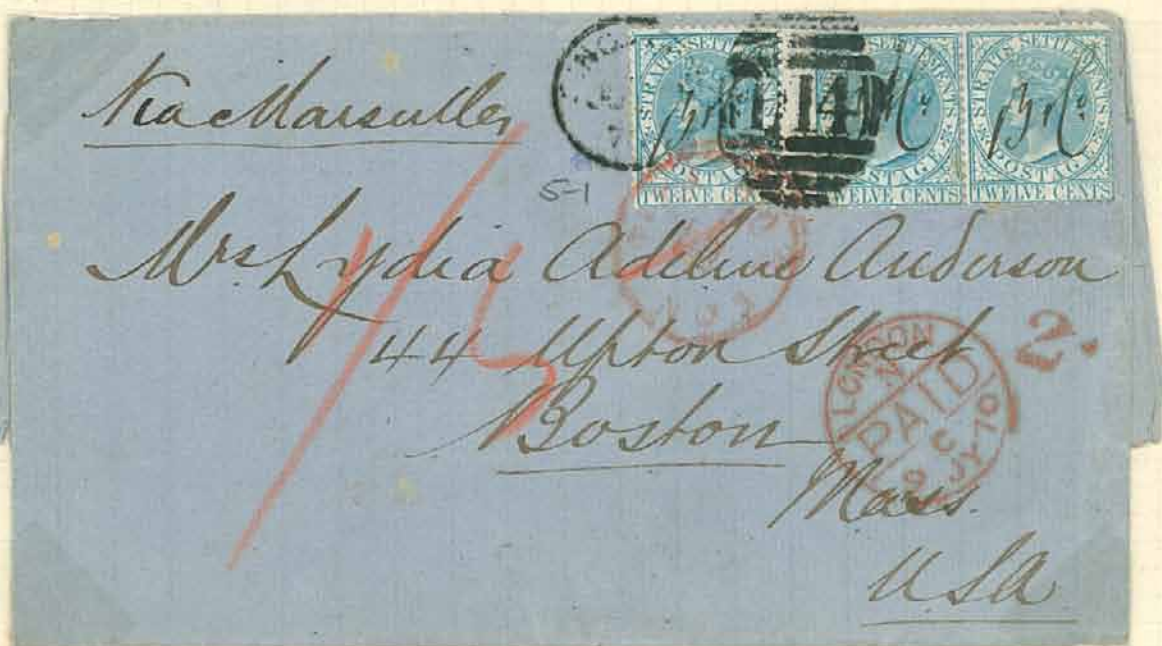 Via Marseilles
STRAITS SETTLEMENTS
POSTAGE
TWELVE CENTS
STRAITS SETTLEMENTS
POSTAGE
TWELVE CENTS
STRAITS SETTLEMENTS
POSTAGE
TWELVE CENTS
5-1
1/3
Mrs Lydia Adeline Anderson
44 Upton Street
Boston
Mass.
USA
LONDON
PAID
C
9 JY 70
2.